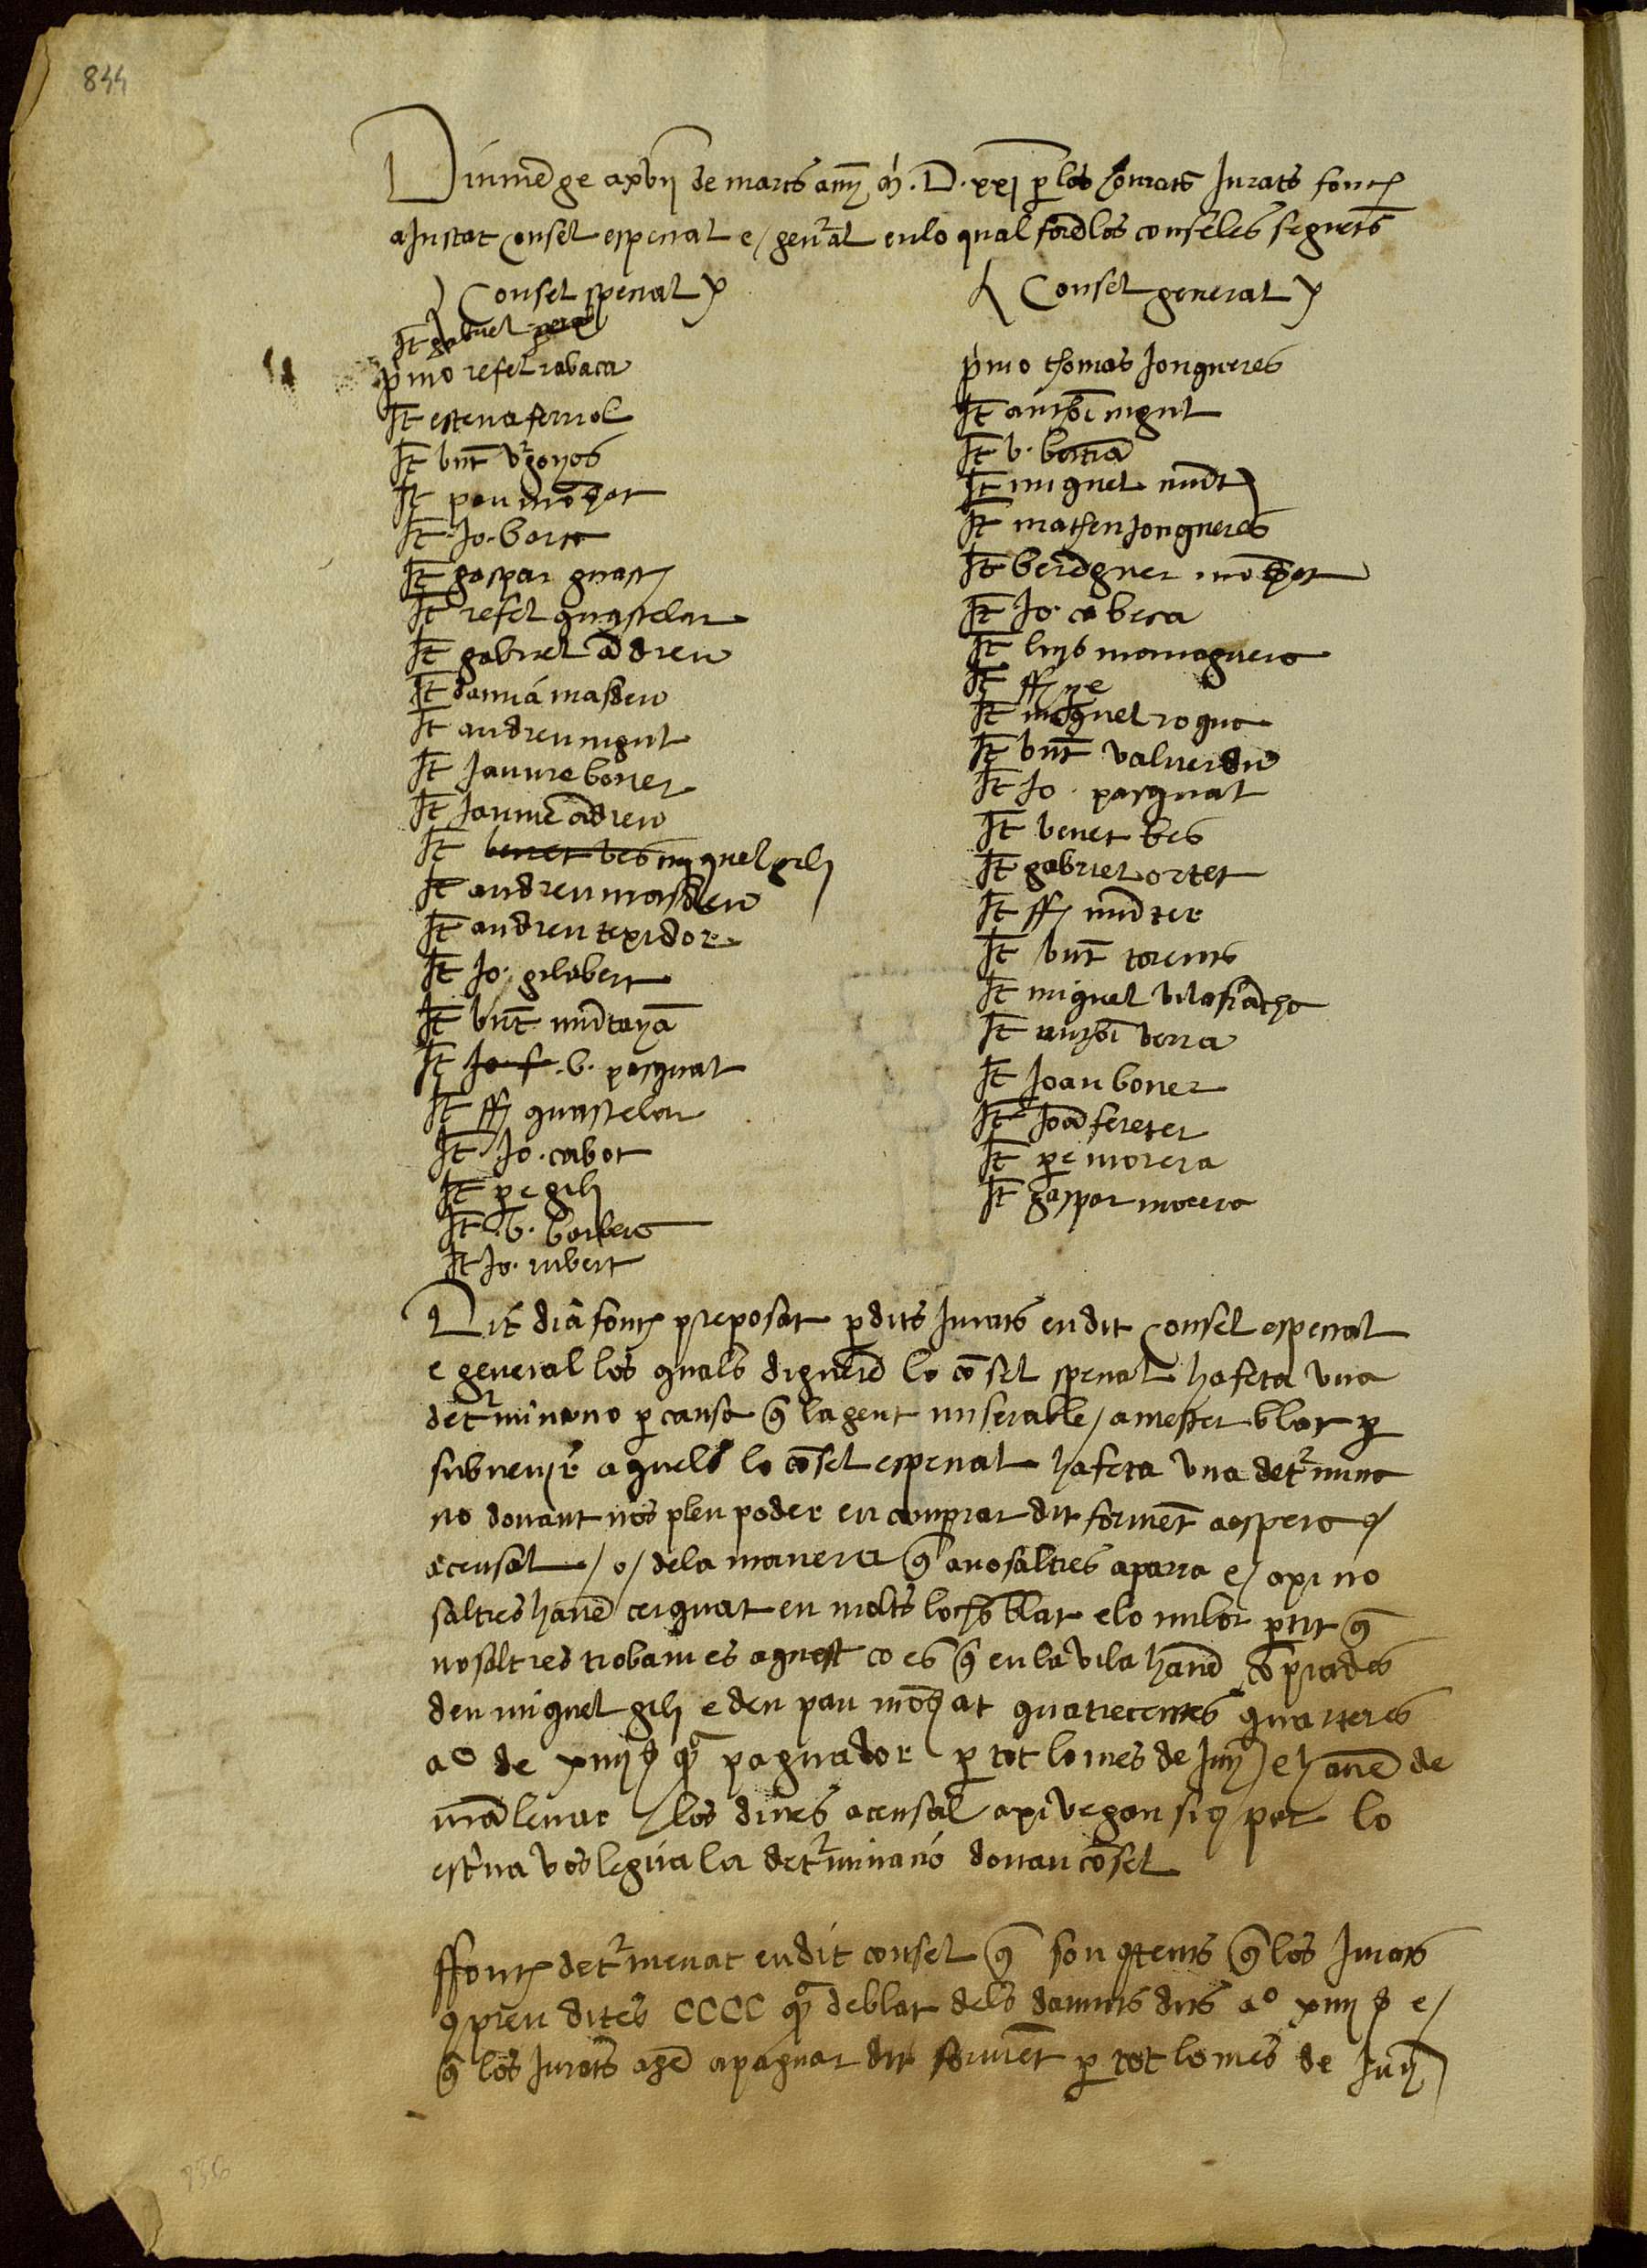 844
Dinmẽge a xvij de mars añy M. D. xxj p los honrats Jurats fonch
aJustat Consel especial e / gen̄al en lo qual forẽ los conseles seguẽts
Consel special
It gabriel
p̃mo refel rabaca
It esteva ferriol
It bñt v̄gonyos
It pau mõgat
It Jo. bort
It gaspar guasch
It refel guastelar
It gabriel ãdreu
It damiá masdeu
It andreu nigul
It Jaume boner
It Jaume ãdreu
It benet bes miquel gili
It andreu masdeu
It andreu texidor
It Jo. gilabert
It bñt mũtayã
It Jo. f. b. pasqual
It ff guastelar
It Jo. cabot
It pe gili
It b. barbera
It Jo. rubert
Consel general
p̃mo thomas Jonqueres
It anthõi nigul
It b. bertrã
It miquel mũt
It matheu Jonqueres
It berẽguer mõgat
It Jo. cabeca
It luys momaguera
It ff pe
It miquel roqua
It bñt valuerdu
It Jo. pasqual
It benet bes
It gabriel ortet
It ff mũter
It bñt torents
It miquel vilafrãcha
It anthõi verra
It Joan boner
It Joã fereter
It pe morera
It gaspar morera
Dit dia fonch preposat p dits Jurats en dit Consel especial
e general los quals digueré lo cõsel special ha feta una
det̄minacio p causa q̃ la gent miserable / a mester blat p
subvenir a quels lo cõsel especial ha feta una det̄mina
cio donant nos plen poder en comprar dit formẽt a espera o /
a censal / o / de la manera q̃ a nosaltres aparra e / axi no
saltres havẽ cerquat en molts lochs blat e lo milor partit q̃
nosaltres trobam es aquest co es q̃ en la vila havẽ cõprades
den miquel gili e den pau mõgat quatrecentes quarteres
a o de xiiij s q̃ paguador p tot lo mes de Juny e / havẽ de
mãlevar / los diners a censal axi vegan si q̃ par lo
 vos legira la det̄minació donau cõsel
ffonch det̄menat en dit consel q̃ son cõtents q̃ los Jurats
cõpren dites CCCC q̃ de blat dels damunt dits a o xiiij s e /
q̃ los Jurats agẽ a paguar dit formẽt p tot lo mes de Juny